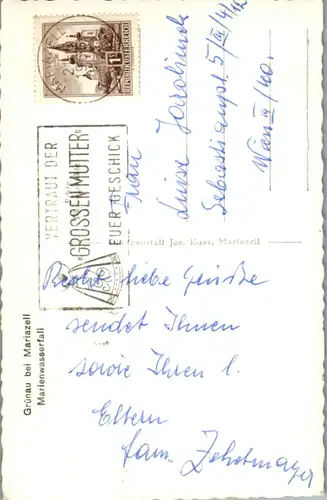 REPUBLIK ÖSTERREICH
VERTRAUT DER
„GROSSEN MUTTER“
EUER GESCHICK
Frau
Luise Jarolimek
Sebastianpl. 5/III/41/42
Wien III/40.
Jos. Kuss, Mariazell
Grünau bei Mariazell
Marienwasserfall
Recht liebe Grüße
sendet Ihnen
sowie Ihren l.
Eltern
fam. Zehetmayer